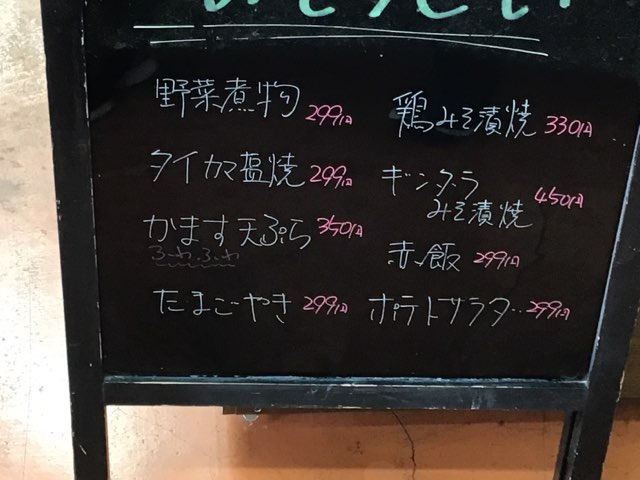 野菜煮物 299円
タイカマ塩焼 299円
かます天ぷら 350円
ふわふわ
たまごやき 299円
鶏みそ漬焼 330円
ギンダラ
みそ漬焼 450円
赤飯 299円
ポテトサラダ 299円